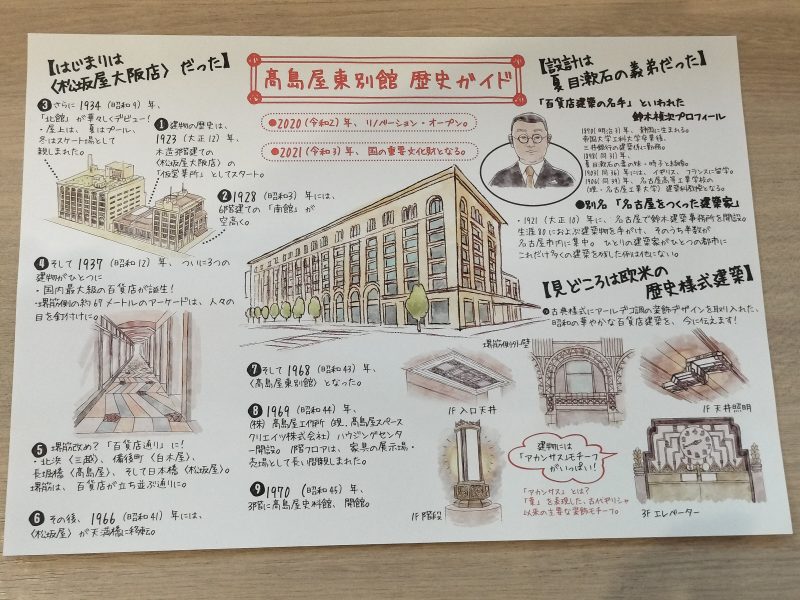 髙島屋東別館 歴史ガイド
●2020(令和2)年、リノベーション・オープン。
●2021(令和3)年、国の重要文化財となる。
【はじまりは
〈松坂屋大阪店〉だった】
❶建物の歴史は、
1923(大正12)年、
木造3階建ての
〈松坂屋大阪店〉の
「仮営業所」としてスタート。
❷1928(昭和3)年には、
6階建ての「南館」が
空高く。
❸さらに1934(昭和9)年、
「北館」が華々しくデビュー!
・屋上は、夏はプール、
冬はスケート場として
親しまれた。
❹そして1937(昭和12)年、ついに3つの
建物がひとつに
・国内最大級の百貨店が誕生!
・堺筋側の約67メートルのアーケードは、人々の
目を釘付けに。
❺堺筋改め?「百貨店通り」に!
・北浜〈三越〉、備後町〈白木屋〉、
長堀橋〈髙島屋〉、そして日本橋〈松坂屋〉。
堺筋は、百貨店が立ち並ぶ通りに。
❻その後、1966(昭和41)年には、
〈松坂屋〉が天満橋に移転。
❼そして1968(昭和43)年、
〈髙島屋東別館〉となった。
❽1969(昭和44)年、
(株)髙島屋工作所(現・髙島屋スペース
クリエイツ株式会社)ハウジングセンタ
ー開設。1階フロアは、家具の展示場・
売場として長い間親しまれた。
❾1970(昭和45)年、
3階に髙島屋史料館、開館。
【設計は
夏目漱石の義弟だった】
「百貨店建築の名手」といわれた
鈴木禎次プロフィール
静岡に生まれる。
帝国大学工科大学を卒業後、
三井銀行の建築係に勤務。
夏目漱石の妻の妹・時子と結婚。
イギリス、フランスに留学。
名古屋高等工業学校の
(現・名古屋工業大学)建築科教授となる。
●別名「名古屋をつくった建築家」
・1921(大正10)年に、名古屋で鈴木建築事務所を開設。
生涯80におよぶ建築物を手がけ、そのうち半数が
名古屋市内に集中。ひとりの建築家がひとつの都市に
これだけ多くの建築を残した例は他にない。
【見どころは欧米の
歴史様式建築】
●古典様式にアール・デコ調の装飾デザインを取り入れた、
昭和の華やかな百貨店建築を、今に伝えます!
堺筋側外壁
1F入口天井
1F天井照明
1F階段
建物には
「アカンサスモチーフ」
がいっぱい!
「アカンサス」とは?
「葉」を表現した、古代ギリシャ
以来の主要な装飾モチーフ。
3Fエレベーター